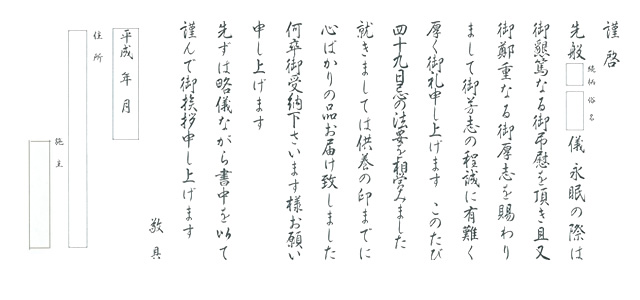 謹啓
先般 続柄 俗名 儀 永眠の際は
御懇篤なる御弔慰を頂き且又
御鄭重なる御厚志を賜わり
まして御芳志の程誠に有難く
厚く御礼申し上げます このたび
四十九日忌の法要を相営みました
就きましては供養の印までに
心ばかりの品お届け致しました
何卒御受納下さいます様お願い
申し上げます
先ずは略儀ながら書中を以て
謹んで御挨拶申し上げます
敬具
平成 年 月
住所
施主